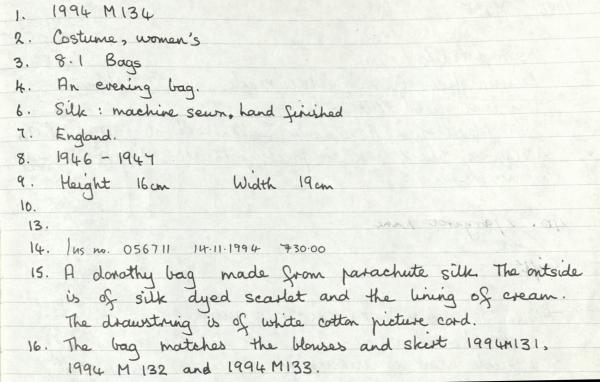 1. 1994 M 134
2. Costume, women's
3. 8.1 Bags
4. An evening bag.
6. Silk : machine sewn, hand finished
7. England.
8. 1946 - 1947
9. Height 16cm Width 19cm
10.
13.
14. Ins no. 056711 14.11.1994 730.00
15. A dorothy bag made from parachute silk. The outside
is of silk dyed scarlet and the lining of cream.
The drawstring is of white cotton picture cord.
16. The bag matches the blouses and skirt 1994M131,
1994 M 132 and 1994 M133.